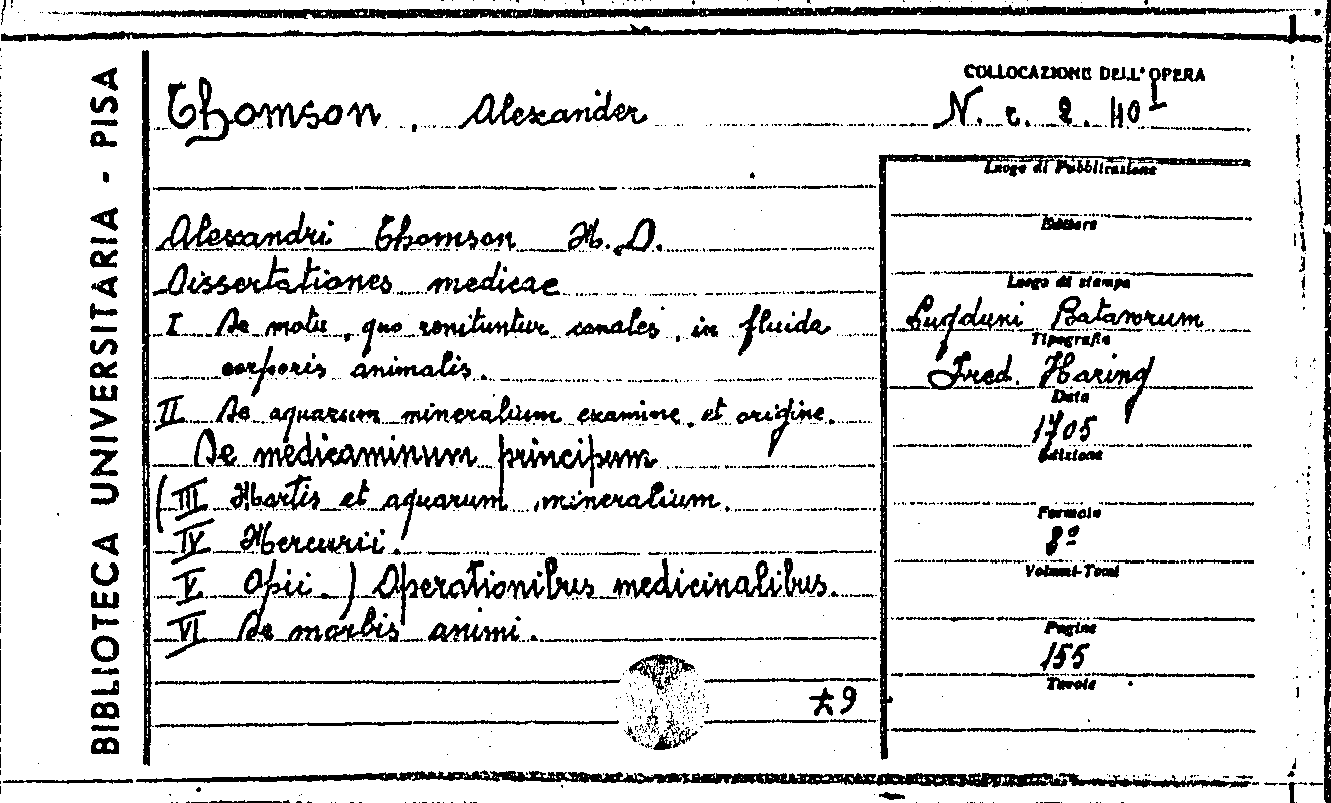 BIBLIOTECA UNIVERSITARIA - PISA
COLLOCAZIONE DELL'OPERA
Thomson, Alexander
N. c. 2. 40 I
Alexandri Thomson M.D.
Dissertationes medicae
I De motu, quo renituntur canales, in fluida
corporis animalis.
II De aquarum mineralium examine, et origine.
De medicaminum principum
(III Martis et aquarum mineralium.
IV Mercurii.
V Opii.) Operationibus medicinalibus.
VI De morbis animi.
*9
Luogo di Pubblicazione
Editore
Luogo di stampa
Lugduni Batavorum
Tipografia
Fred. Haring
Data
1705
Edizione
Formato
8º
Volumi-Tomi
Pagine
155
Tavole